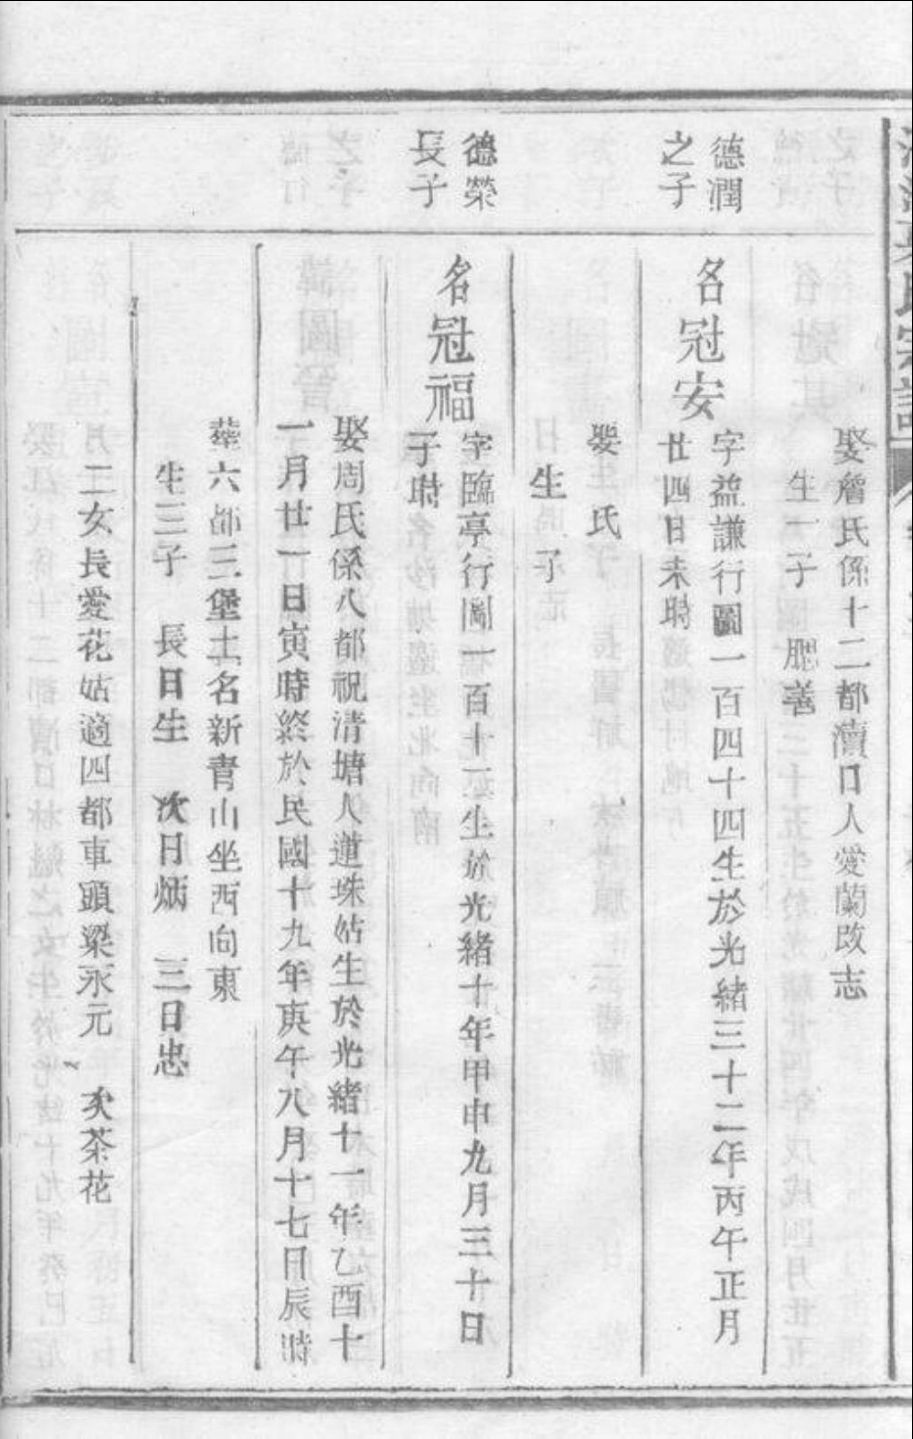 氏宗譜
娶詹氏係十二都瀆口人愛蘭改志
生一子 腮善
德潤
之子
名冠安
字益謙行圖一百四十四生於光緒三十二年丙午正月
廿四日未時
娶 氏
生 子
德榮
長子
名冠福
字臨亭行圖一百十二生於光緒十年甲申九月三十日
子時
娶周氏係八都祝清塘人蓮珠姑生於光緒十一年乙酉十
一月廿一日寅時終於民國十九年庚午八月十七日辰時
葬六都三堡土名新青山坐西向東
生三子 長日生 次日炳 三日忠
二女長愛花姑適四都車頭梁永元 次茶花